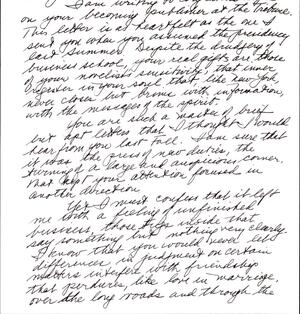 I am writing to
on your becoming publisher at the Tribune.
This letter is as heartfelt as the one I
sent you when you assumed the presidency
last summer. Despite the drudgery of
business school, your real gifts are those
of your novelist's sensitivity, that inner
register in your soul that, like New York
never closes but hums with information,
with the messages of the spirit.
You are such a master of brief
but apt letters that I thought I would
hear from you last fall. I am sure that
it was the press of new duties, the
turning of a large and auspicious corner,
that kept your attention focused in
another direction.
Yet I must confess that it left
me with a feeling of unfinished
business, those inside that
say something but nothing very clearly.
I know that you would never let
differences in judgment on certain
matters interfere with friendship
that perdures, like love in marriage,
over the long roads and through the